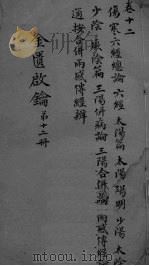 卷十二
傷寒六經總論 六經 太陽篇 太陽 陽明 少陽 太陰
少陰 厥陰篇 三陽併病論 三陽合病論 兩感傳經
過按合併兩感傳經辨
金匱啟鑰 第十二册